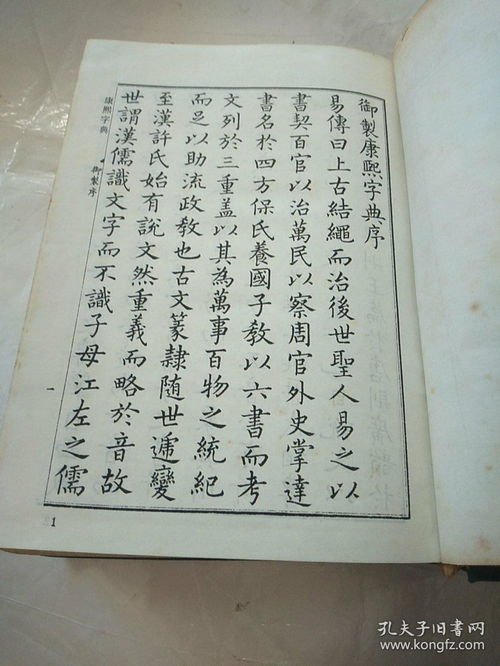 御製康熙字典序
易傳曰上古結繩而治後世聖人易之以
書契百官以治萬民以察周官外史掌達
書名於四方保氏養國子教以六書而考
文列於三重蓋以其為萬事百物之統紀
而足以助流政教也古文篆隸隨世遞變
至漢許氏始有說文然重義而略於音故
世謂漢儒識文字而不識子母江左之儒
康熙字典
御製序
一
1
孔夫子旧书网
kongfz.com